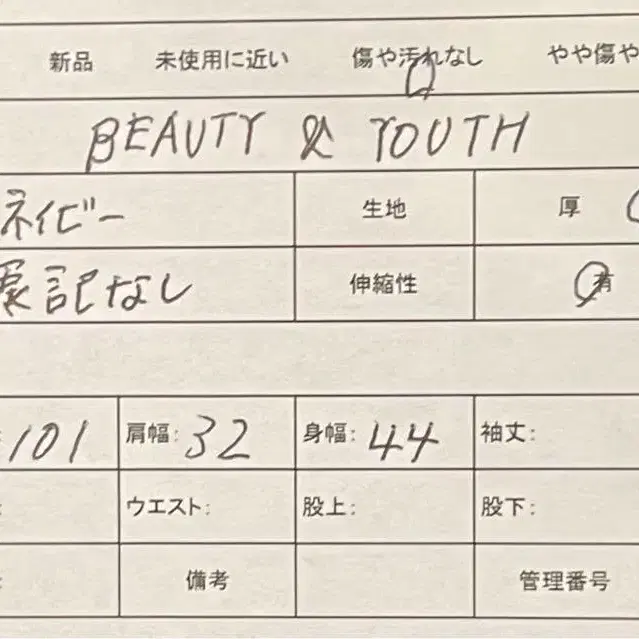 新品 未使用に近い 傷や汚れなし やや傷や
BEAUTY & YOUTH
ネイビー 生地 厚
表記なし 伸縮性 有
101 肩幅: 32 身幅: 44 袖丈:
ウエスト: 股上: 股下:
備考 管理番号